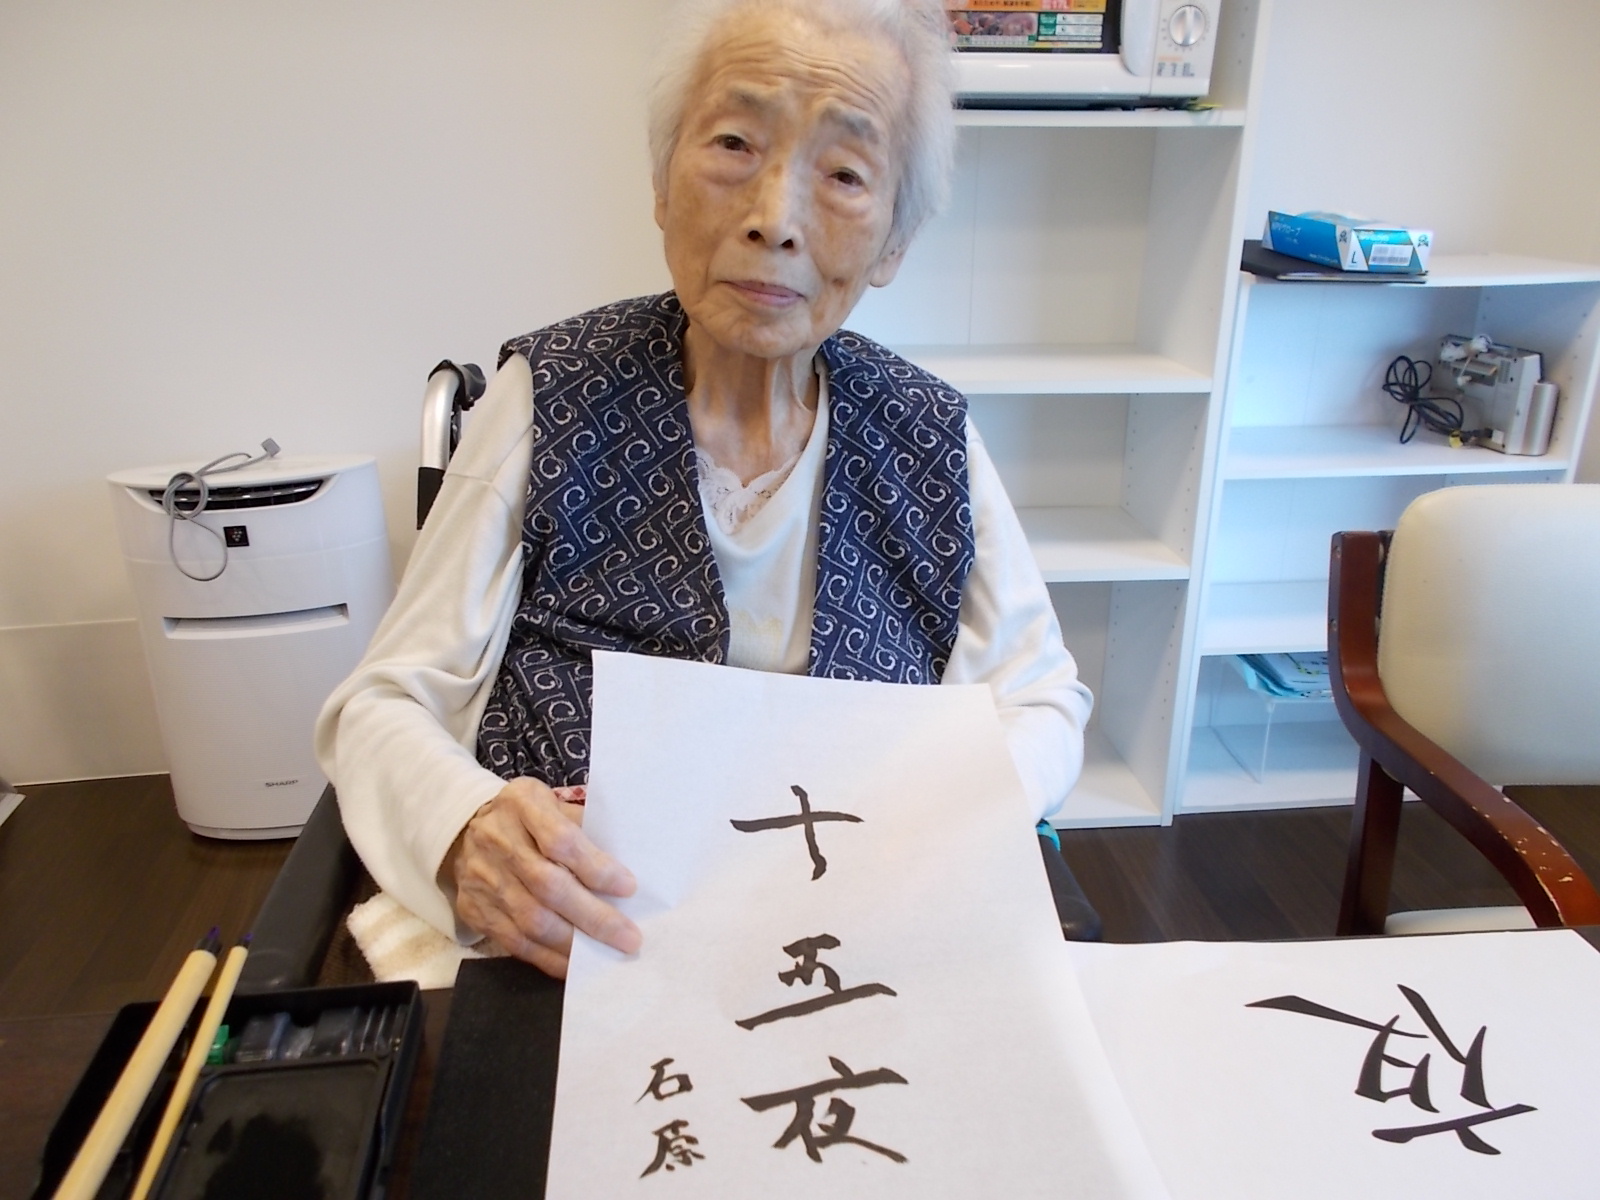 十五夜
石原
夜
SHARP
L